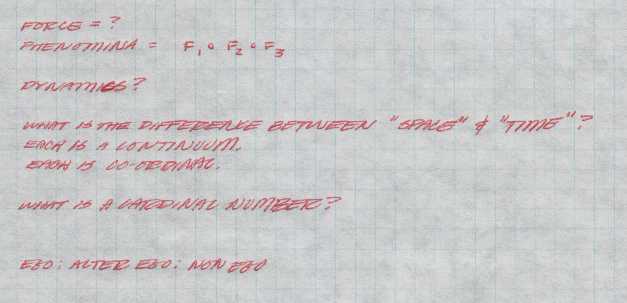 FORCE = ?
PHENOMINA = F₁ ∘ F₂ ∘ F₃
DYNAMICS?
WHAT IS THE DIFFERENCE BETWEEN "SPACE" & "TIME"?
EACH IS A CONTINUUM.
EACH IS CO-ORDINAL.
WHAT IS A CARDINAL NUMBER?
EGO: ALTER EGO: NON EGO